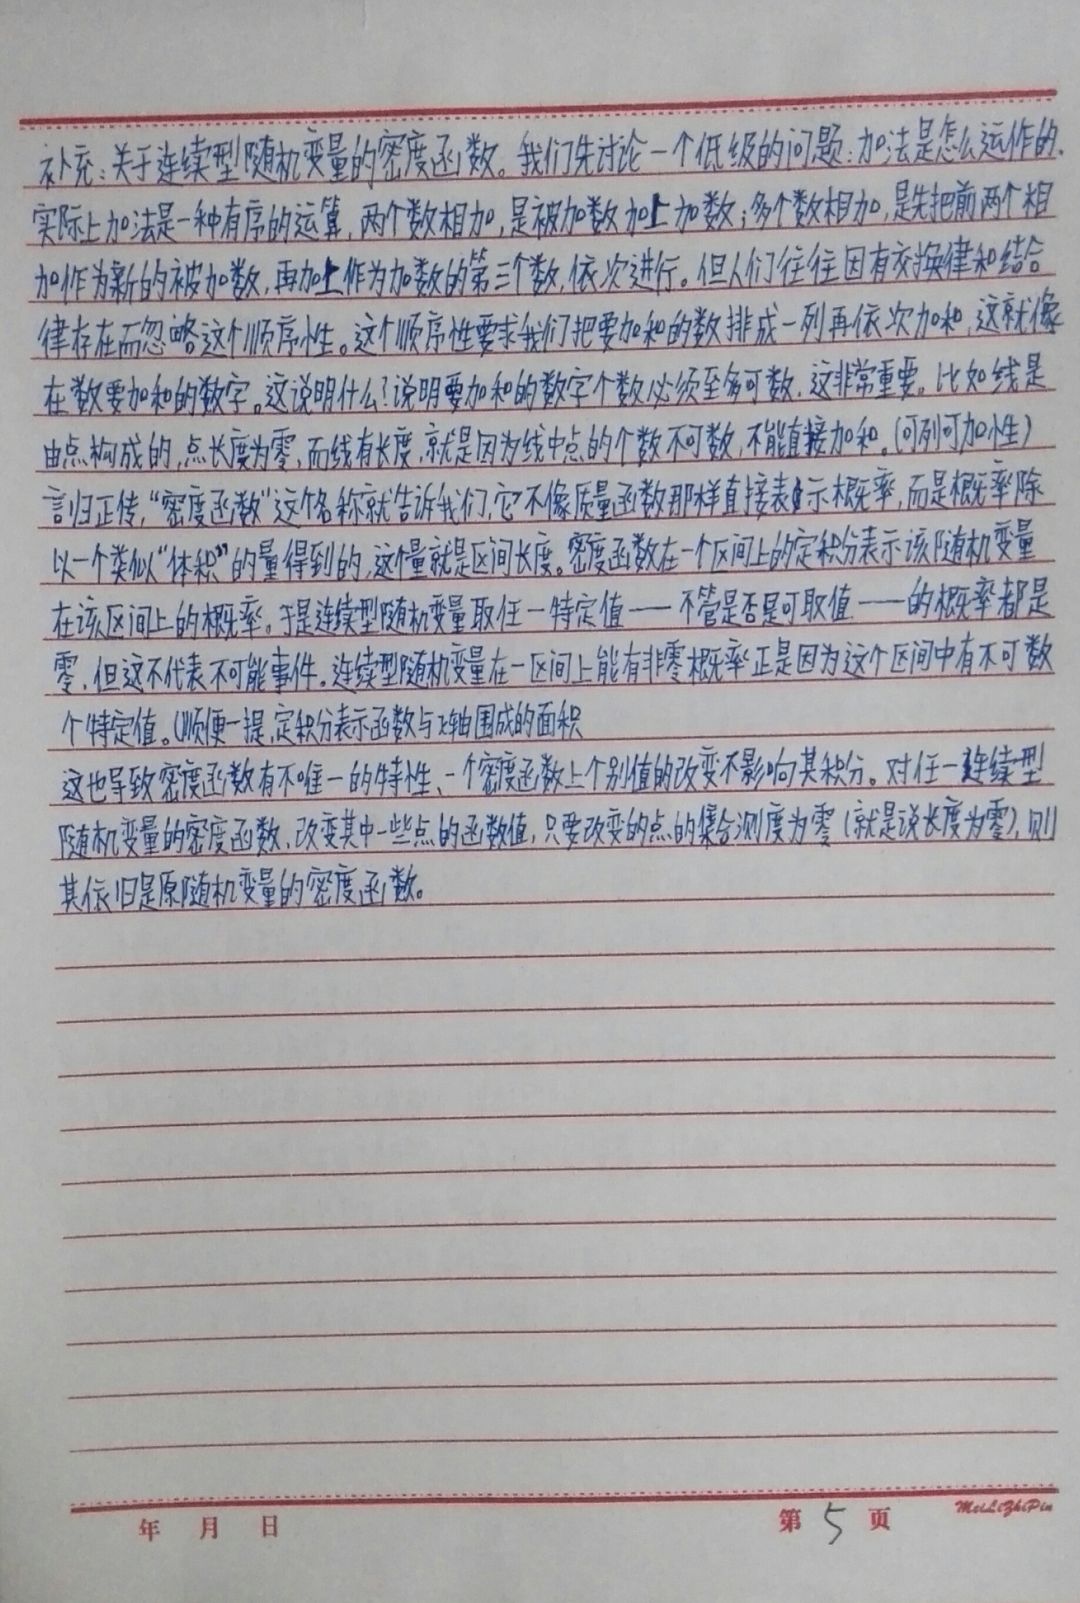 补充:关于连续型随机变量的密度函数。我们先讨论一个低级的问题:加法是怎么运作的.
实际上加法是一种有序的运算,两个数相加,是被加数加上加数;多个数相加,是先把前两个相
加作为新的被加数,再加上作为加数的第三个数,依次进行。但人们往往因有交换律和结合
律存在而忽略这个顺序性。这个顺序性要求我们把要加和的数排成一列再依次加和,这就像
在数要加和的数字。这说明什么?说明要加和的数字个数必须至多可数,这非常重要。比如线是
由点构成的,点长度为零,而线有长度,就是因为线中点的个数不可数,不能直接加和。(可列可加性)
言归正传,“密度函数”这个名称就告诉我们,它不像质量函数那样直接表示概率,而是概率除
以一个类似“体积”的量得到的,这个量就是区间长度。密度函数在一个区间上的定积分表示该随机变量
在该区间上的概率。于是连续型随机变量取任一特定值——不管是否是可取值——的概率都是
零,但这不代表不可能事件。连续型随机变量在一区间上能有非零概率正是因为这个区间中有不可数
个特定值。(顺便一提,定积分表示函数与x轴围成的面积
这也导致密度函数有不唯一的特性、一个密度函数上个别值的改变不影响其积分。对任一连续型
随机变量的密度函数,改变其中一些点的函数值,只要改变的点的集合测度为零(就是说长度为零),则
其依旧是原随机变量的密度函数。
年 月 日 第 5 页 MeiLiZhiPin